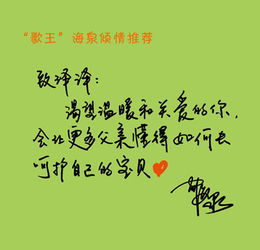 “歌王”海泉倾情推荐
致译译：
渴望温暖和关爱的你，
会让更多父亲懂得如何去
呵护自己的宝贝